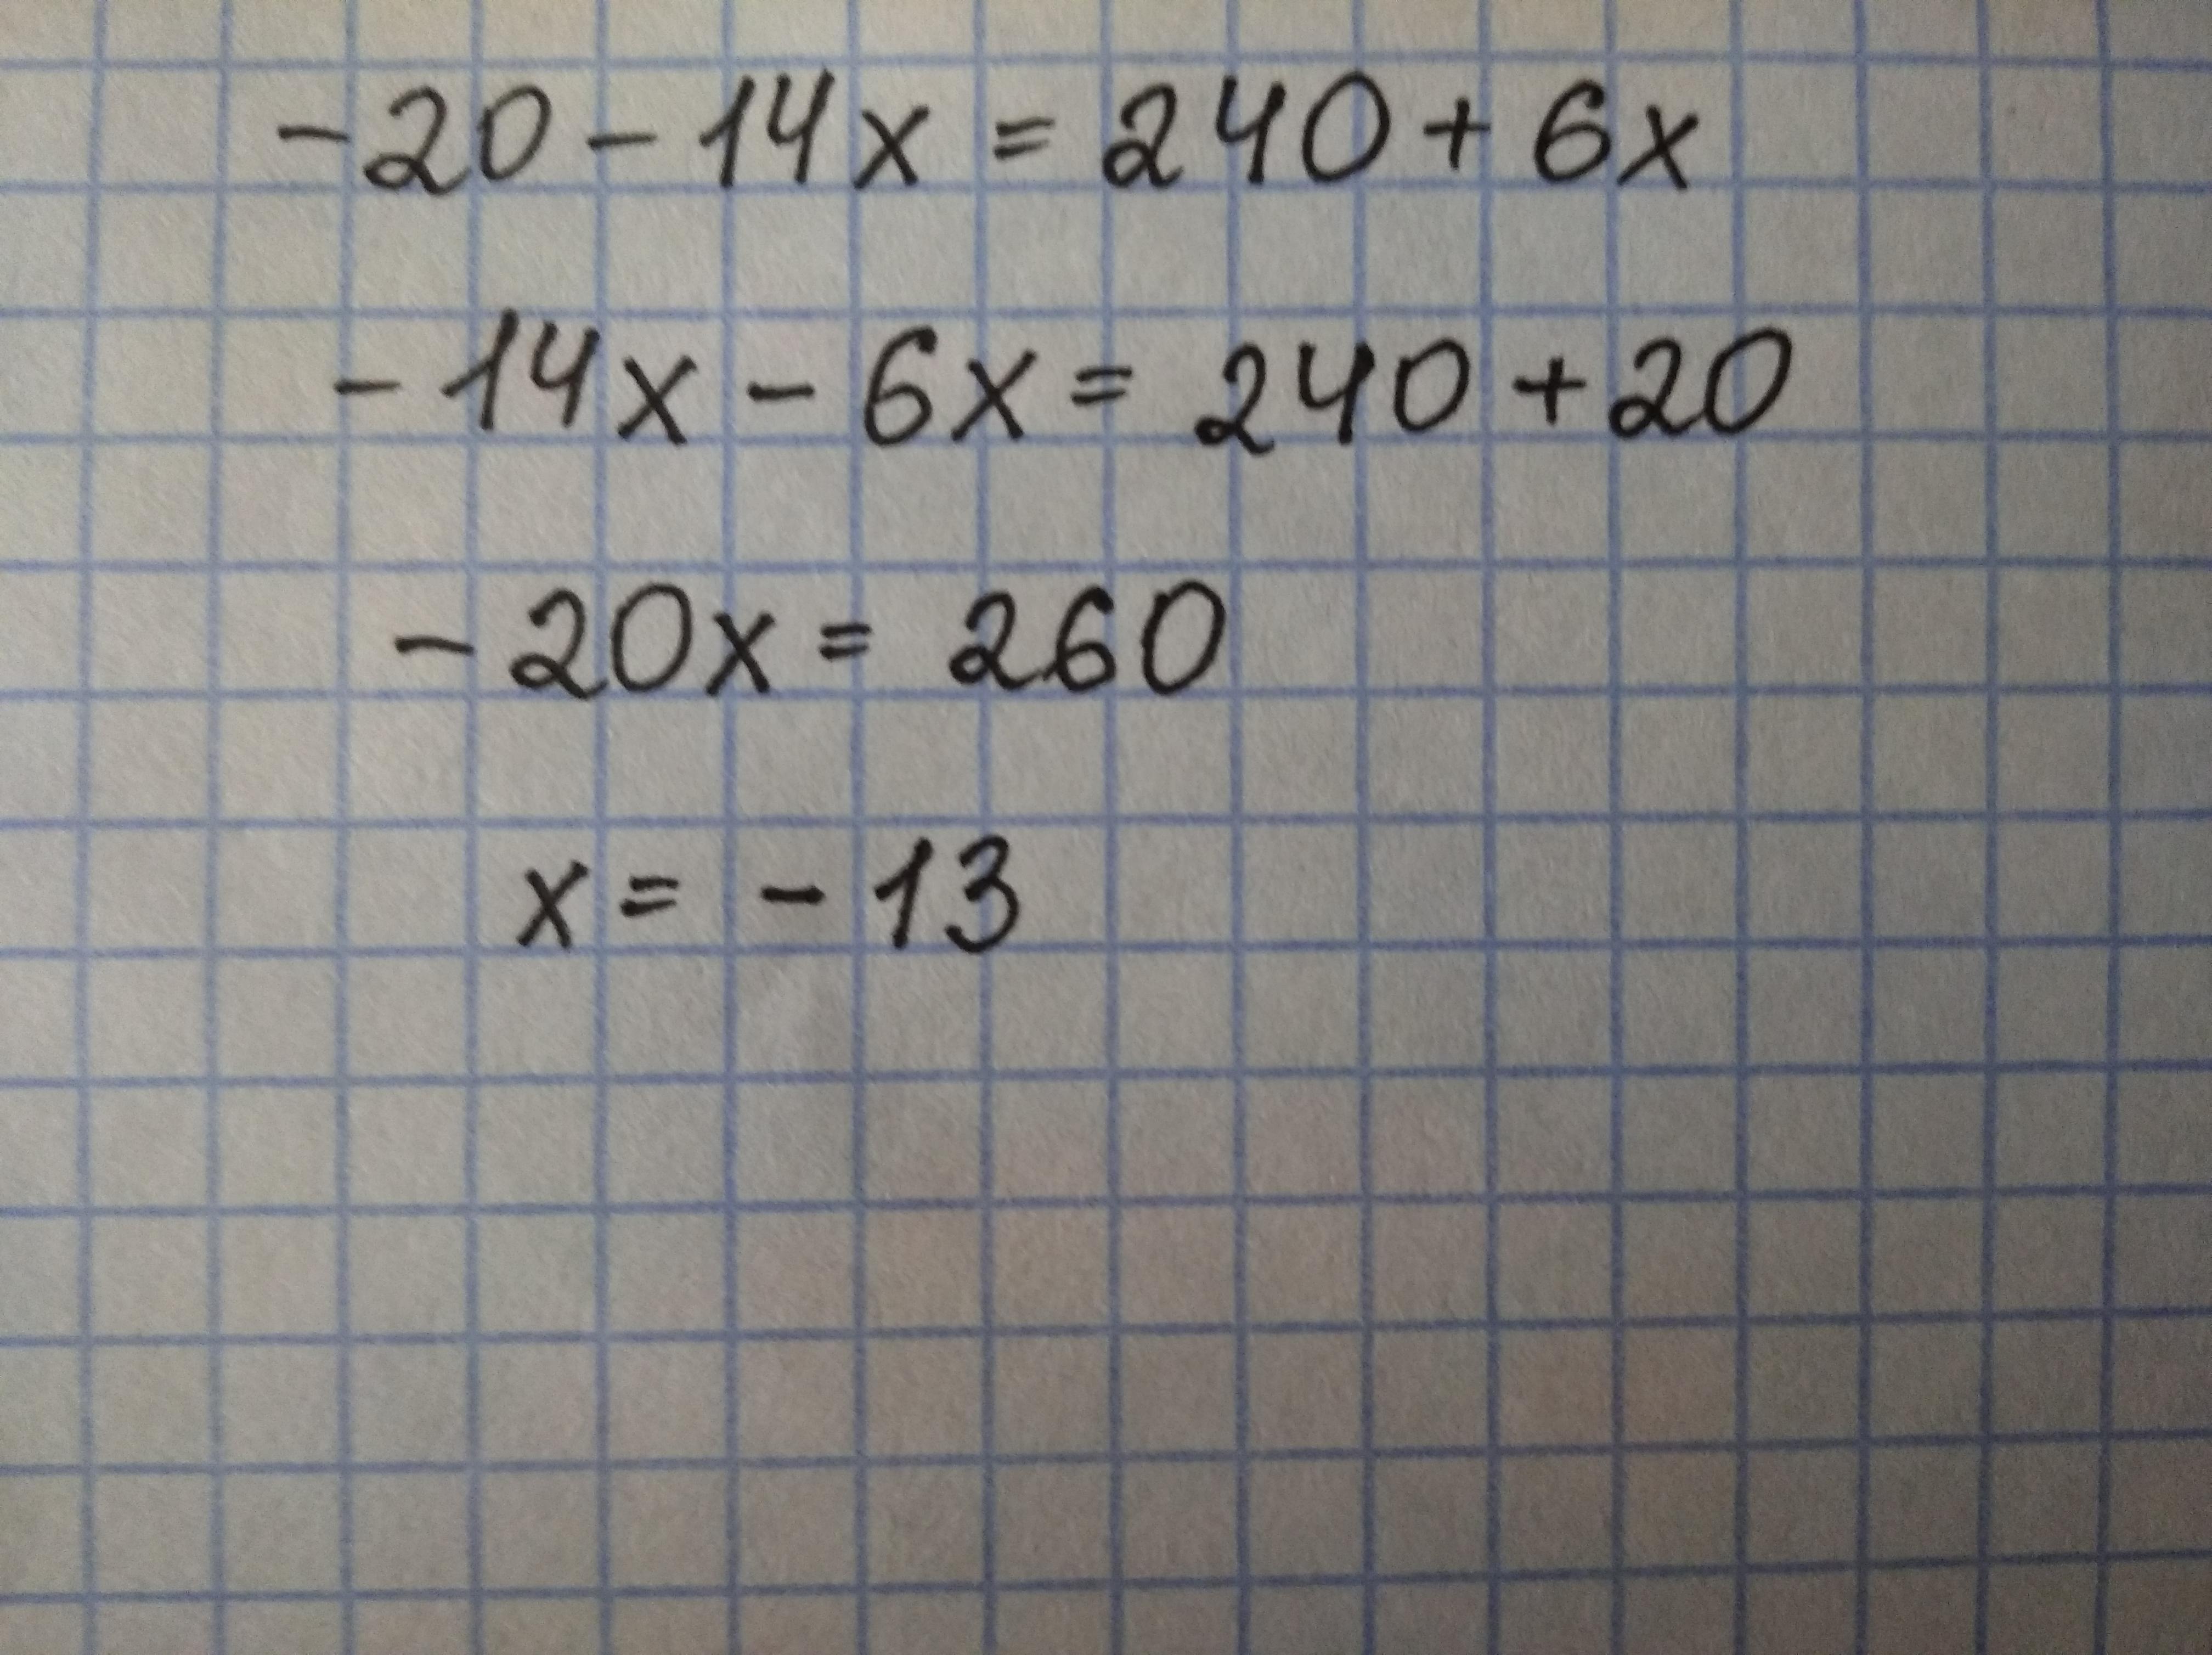 -20 - 14x = 240 + 6x
-14x - 6x = 240 + 20
-20x = 260
x = -13